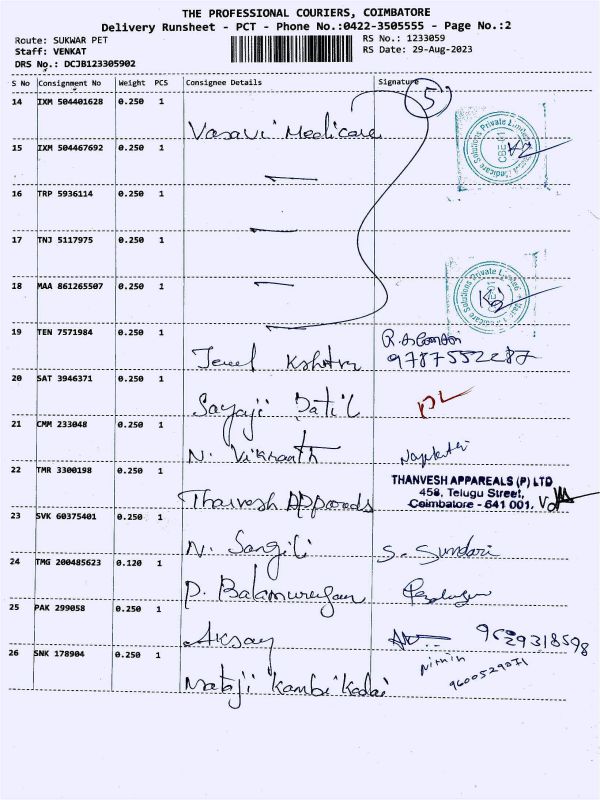 THE PROFESSIONAL COURIERS, COIMBATORE
Delivery Runsheet - PCT - Phone No.:0422-3505555 - Page No.:2
Route: SUKWAR PET
RS No.: 1233059
Staff: VENKAT
RS Date: 29-Aug-2023
DRS No.: DCJB123305902
S No Consignment No Weight PCS Consignee Details Signature
5
14 IXM 504401628 0.250 1
Vasavi Medicare
15 IXM 504467692 0.250 1
16 TRP 5936114 0.250 1
17 TNJ 5117975 0.250 1
18 MAA 861265507 0.250 1
19 TEN 7571984 0.250 1
Jewel Kshatra
9787552287
20 SAT 3946371 0.250 1
Sayaji Patil
21 CMM 233048 0.250 1
N. Vikraath
22 TMR 3300198 0.250 1
THANVESH APPAREALS (P) LTD
458, Telugu Street,
Coimbatore - 641 001.
Thanvesh
23 SVK 60375401 0.250 1
N. Sangili S. Sundari
24 TMG 200485623 0.120 1
P. Balamurugan
25 PAK 299058 0.250 1
Aksay 9629318598
26 SNK 178904 0.250 1
Nithin
9600529071
Mataji Kambi Kadai